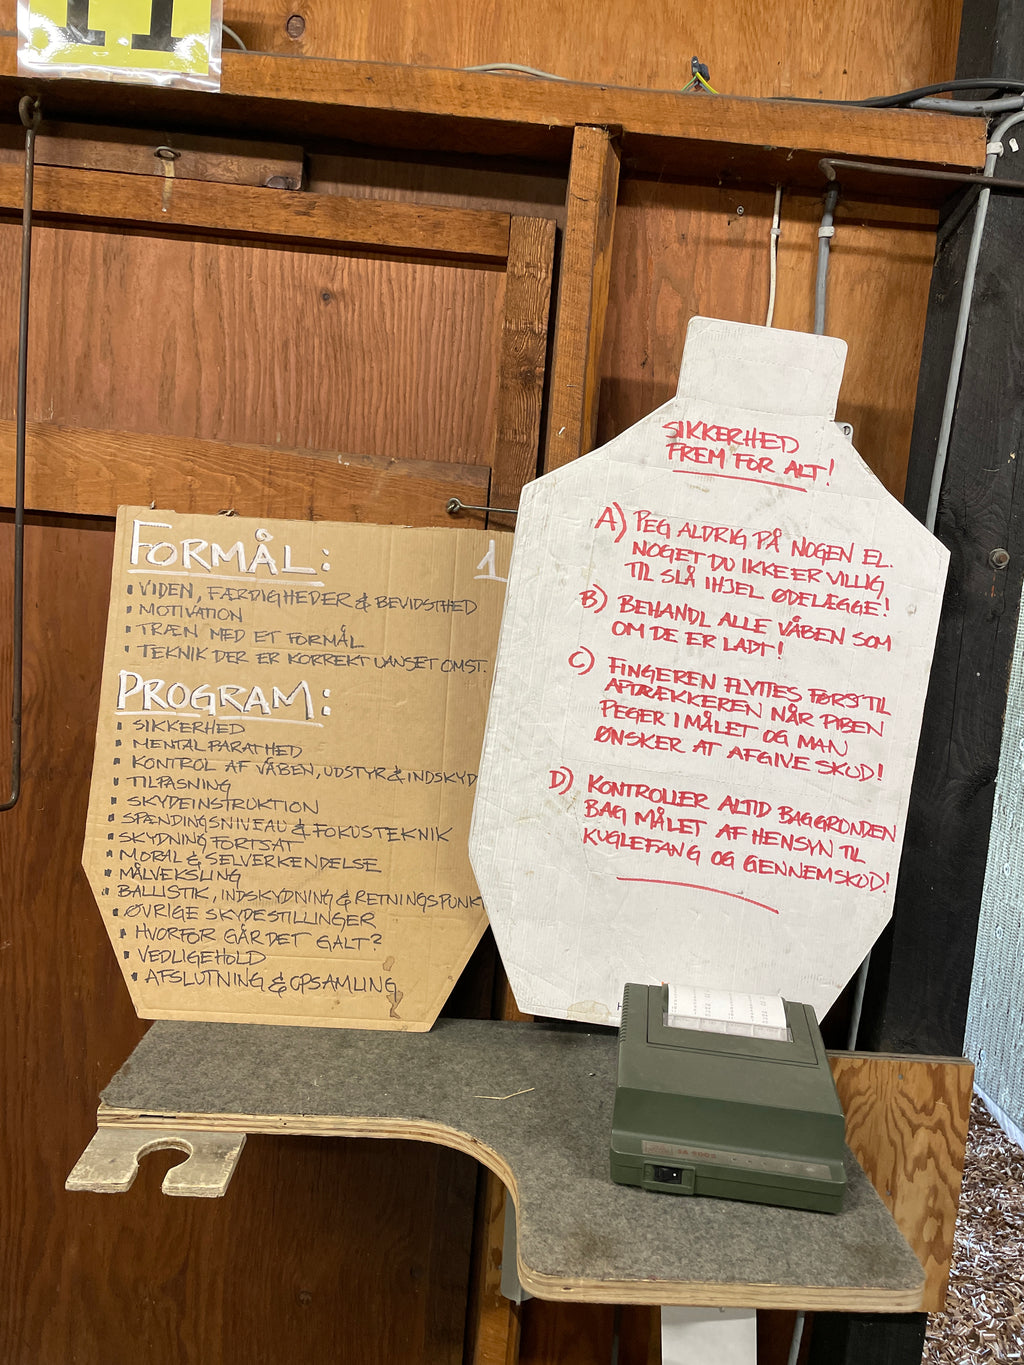 FORMÅL: 1
VIDEN, FÆRDIGHEDER & BEVIDSTHED
MOTIVATION
TRÆN MED ET FORMÅL
TEKNIK DER ER KORREKT UANSET OMST.
PROGRAM:
SIKKERHED
MENTAL PARATHED
KONTROL AF VÅBEN, UDSTYR & INDSKYD
TILPASNING
SKYDEINSTRUKTION
SPÆNDINGSNIVEAU & FOKUSTEKNIK
SKYDNING FORTSAT
MORAL & SELVERKENDELSE
MÅLVEKSLING
BALLISTIK, INDSKYDNING & RETNINGSPUNK
ØVRIGE SKYDESTILLINGER
HVORFOR GÅR DET GALT?
VEDLIGEHOLD
AFSLUTNING & OPSAMLING
SIKKERHED
FREM FOR ALT!
A) PEG ALDRIG PÅ NOGEN EL.
NOGET DU IKKE ER VILLIG
TIL SLÅ IHJEL ØDELÆGGE!
B) BEHANDL ALLE VÅBEN SOM
OM DE ER LADT!
C) FINGEREN FLYTTES FØRST TIL
AFTRÆKKEREN NÅR PIBEN
PEGER I MÅLET OG MAN
ØNSKER AT AFGIVE SKUD!
D) KONTROLLER ALTID BAGGRUNDEN
BAG MÅLET AF HENSYN TIL
KUGLEFANG OG GENNEMSKUD!